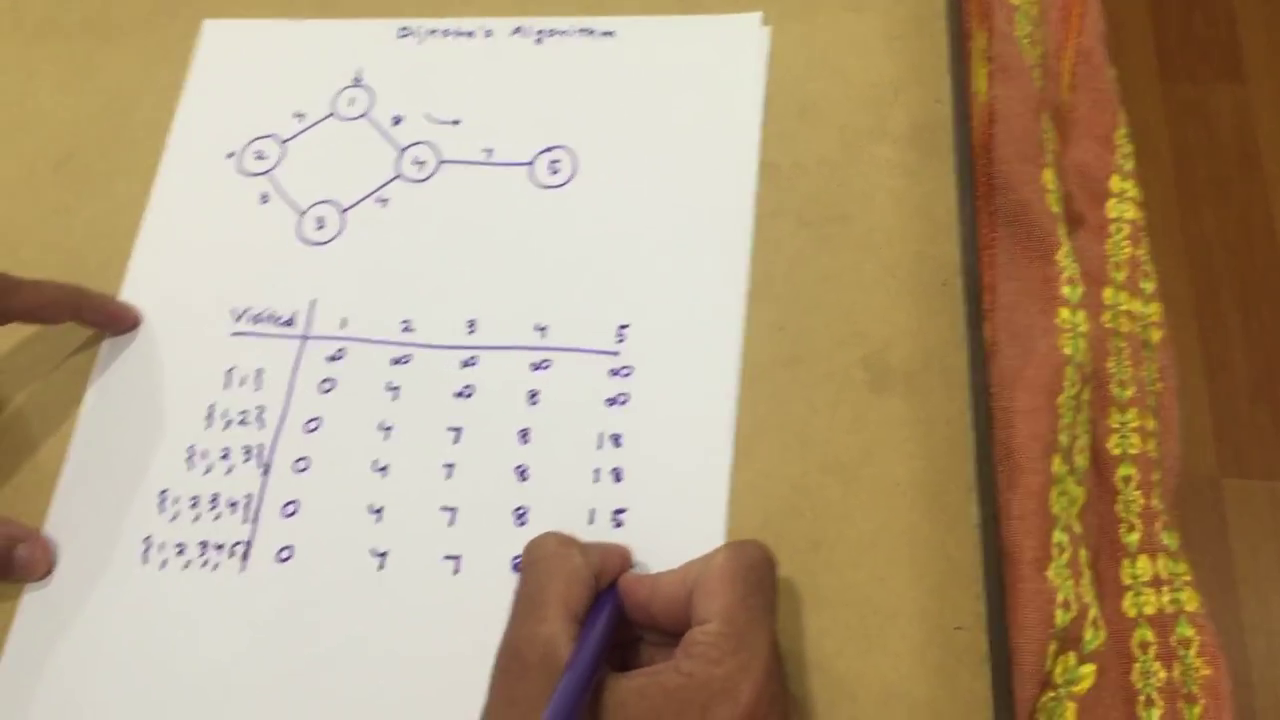 Dijkstra's Algorithm
1
4 8
2 4 7 5
3 4
3
Visited 1 2 3 4 5
∞ ∞ ∞ ∞ ∞
{1} 0 4 ∞ 8 ∞
{1,2} 0 4 7 8 18
{1,2,3} 0 4 7 8 18
{1,2,3,4} 0 4 7 8 15
{1,2,3,4,5} 0 4 7 8